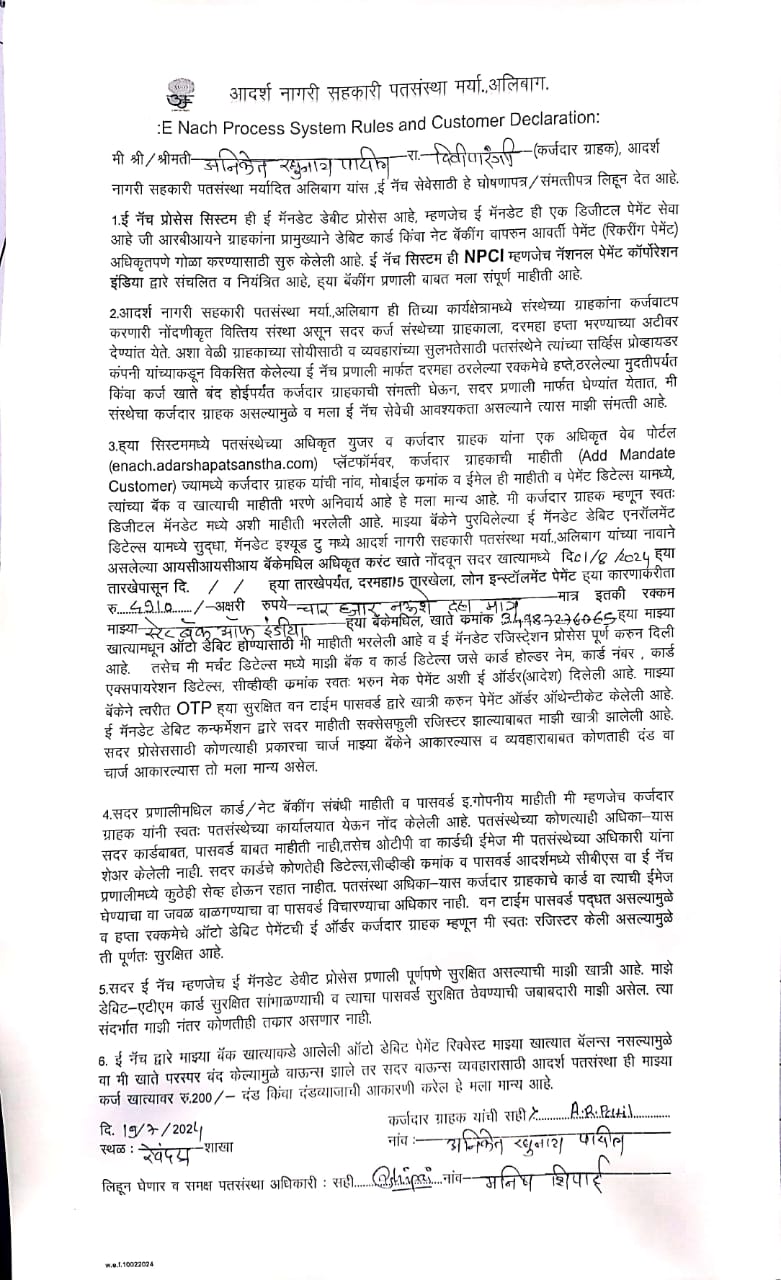 आदर्श नागरी सहकारी पतसंस्था मर्या.,अलिबाग.
:E Nach Process System Rules and Customer Declaration:
मी श्री/श्रीमती अनिकेत रघुनाथ पाटील रा. दिवीपारंगी (कर्जदार ग्राहक), आदर्श
नागरी सहकारी पतसंस्था मर्यादित अलिबाग यांस ,ई नॅच सेवेसाठी हे घोषणापत्र/संमत्तीपत्र लिहून देत आहे.
1.ई नॅच प्रोसेस सिस्टम ही ई मॅनडेट डेबीट प्रोसेस आहे, म्हणजेच ई मॅनडेट ही एक डिजीटल पेमेंट सेवा
आहे जी आरबीआयने ग्राहकांना प्रामुख्याने डेबिट कार्ड किंवा नेट बॅकींग वापरुन आवर्ती पेमेंट (रिकरींग पेमेंट)
अधिकृतपणे गोळा करण्यासाठी सुरु केलेली आहे. ई नॅच सिस्टम ही NPCI म्हणजेच नॅशनल पेमेंट कॉर्पोरेशन
इंडिया द्वारे संचलित व नियंत्रित आहे, ह्या बॅकींग प्रणाली बाबत मला संपूर्ण माहीती आहे.
2.आदर्श नागरी सहकारी पतसंस्था मर्या.,अलिबाग ही तिच्या कार्यक्षेत्रामध्ये संस्थेच्या ग्राहकांना कर्जवाटप
करणारी नोंदणीकृत वित्तिय संस्था असून सदर कर्ज संस्थेच्या ग्राहकाला, दरमहा हप्ता भरण्याच्या अटीवर
देण्यांत येते. अशा वेळी ग्राहकाच्या सोयीसाठी व व्यवहारांच्या सुलभतेसाठी पतसंस्थेने त्यांच्या सर्व्हिस प्रोव्हायडर
कंपनी यांच्याकडून विकसित केलेल्या ई नॅच प्रणाली मार्फत दरमहा ठरलेल्या रक्कमेचे हप्ते,ठरलेल्या मुदतीपर्यंत
किंवा कर्ज खाते बंद होईपर्यंत कर्जदार ग्राहकाची संमत्ती घेऊन, सदर प्रणाली मार्फत घेण्यांत येतात, मी
संस्थेचा कर्जदार ग्राहक असल्यामुळे व मला ई नॅच सेवेची आवश्यकता असल्याने त्यास माझी संमत्ती आहे.
3.ह्या सिस्टममध्ये पतसंस्थेच्या अधिकृत युजर व कर्जदार ग्राहक यांना एक अधिकृत वेब पोर्टल
(enach.adarshapatsanstha.com) प्लॅटफॉर्मवर, कर्जदार ग्राहकाची माहीती (Add Mandate
Customer) ज्यामध्ये कर्जदार ग्राहक यांची नांव, मोबाईल क्रमांक व ईमेल ही माहीती व पेमेंट डिटेल्स यामध्ये,
त्यांच्या बॅक व खात्याची माहीती भरणे अनिवार्य आहे हे मला मान्य आहे. मी कर्जदार ग्राहक म्हणून स्वतः
डिजीटल मॅनडेट मध्ये अशी माहीती भरलेली आहे. माझ्या बॅकेने पुरविलेल्या ई मॅनडेट डेबिट एनरॉलमेंट
डिटेल्स यामध्ये सुद्धा, मॅनडेट इश्यूड टु मध्ये आदर्श नागरी सहकारी पतसंस्था मर्या.,अलिबाग यांच्या नावाने
असलेल्या आयसीआयसीआय बॅकेमधिल अधिकृत करंट खाते नोंदवून सदर खात्यामध्ये दि.01/8/2024 ह्या
तारखेपासून दि. / / ह्या तारखेपर्यंत, दरमहा15 तारखेला, लोन इन्स्टॉलमेंट पेमेंट ह्या कारणाकरीता
रु....4910....../-अक्षरी रुपये चार हजार नऊशे दहा मात्र मात्र इतकी रक्कम
माझ्या स्टेट बँक ऑफ इंडीया ह्या बॅकेमधिल, खाते क्रमांक 34987276065 ह्या माझ्या
खात्यामधून ऑटो डेबिट होण्यासाठी मी माहीती भरलेली आहे व ई मॅनडेट रजिस्ट्रेशन प्रोसेस पूर्ण करुन दिली
आहे. तसेच मी मर्चंट डिटेल्स मध्ये माझी बॅक व कार्ड डिटेल्स जसे कार्ड होल्डर नेम, कार्ड नंबर , कार्ड
एक्सपायरेशन डिटेल्स, सीव्हीव्ही क्रमांक स्वतः भरुन मेक पेमेंट अशी ई ऑर्डर(आदेश) दिलेली आहे. माझ्या
बॅकेने त्वरीत OTP ह्या सुरक्षित वन टाईम पासवर्ड द्वारे खात्री करुन पेमेंट ऑर्डर ऑथेन्टीकेट केलेली आहे.
ई मॅनडेट डेबिट कन्फर्मेशन द्वारे सदर माहीती सक्सेसफुली रजिस्टर झाल्याबाबत माझी खात्री झालेली आहे.
सदर प्रोसेससाठी कोणत्याही प्रकारचा चार्ज माझ्या बॅकेने आकारल्यास व व्यवहाराबाबत कोणताही दंड वा
चार्ज आकारल्यास तो मला मान्य असेल.
4.सदर प्रणालीमधिल कार्ड/नेट बॅकींग संबंधी माहीती व पासवर्ड इ.गोपनीय माहीती मी म्हणजेच कर्जदार
ग्राहक यांनी स्वतः पतसंस्थेच्या कार्यालयात येऊन नोंद केलेली आहे. पतसंस्थेच्या कोणत्याही अधिका-यास
सदर कार्डबाबत, पासवर्ड बाबत माहीती नाही,तसेच ओटीपी वा कार्डची ईमेज मी पतसंस्थेच्या अधिकारी यांना
शेअर केलेली नाही. सदर कार्डचे कोणतेही डिटेल्स,सीव्हीव्ही क्रमांक व पासवर्ड आदर्शमध्ये सीबीएस वा ई नॅच
प्रणालीमध्ये कुठेही सेव्ह होऊन रहात नाहीत. पतसंस्था अधिका-यास कर्जदार ग्राहकाचे कार्ड वा त्याची ईमेज
घेण्याचा वा जवळ बाळगण्याचा वा पासवर्ड विचारण्याचा अधिकार नाही. वन टाईम पासवर्ड पद्धत असल्यामुळे
व हप्ता रक्कमेचे ऑटो डेबिट पेमेंटची ई ऑर्डर कर्जदार ग्राहक म्हणून मी स्वतः रजिस्टर केली असल्यामुळे
ती पूर्णतः सुरक्षित आहे.
5.सदर ई नॅच म्हणजेच ई मॅनडेट डेवीट प्रोसेस प्रणाली पूर्णपणे सुरक्षित असल्याची माझी खात्री आहे. माझे
डेबिट-एटीएम कार्ड सुरक्षित सांभाळण्याची व त्याचा पासवर्ड सुरक्षित ठेवण्याची जबाबदारी माझी असेल. त्या
संदर्भात माझी नंतर कोणतीही तकार असणार नाही.
6. ई नॅच द्वारे माझ्या बॅक खात्याकडे आलेली ऑटो डेबिट पेमेंट रिक्वेस्ट माझ्या खात्यात बॅलन्स नसल्यामुळे
वा मी खाते परस्पर बंद केल्यामुळे वाऊन्स झाले तर सदर वाऊन्स व्यवहारासाठी आदर्श पतसंस्था ही माझ्या
कर्ज खात्यावर रु.200/- दंड किंवा दंडव्याजाची आकारणी करेल हे मला मान्य आहे.
दि. 19/7/2024 कर्जदार ग्राहक यांची सही/-...........A.R.Patil..............
स्थळ : रेवदंडा शाखा नांव :- अनिकेत रघुनाथ पाटील
लिहून घेणार व समक्ष पतसंस्था अधिकारी : सही............नांव मनिष शिपाई
w.e.f.10022024